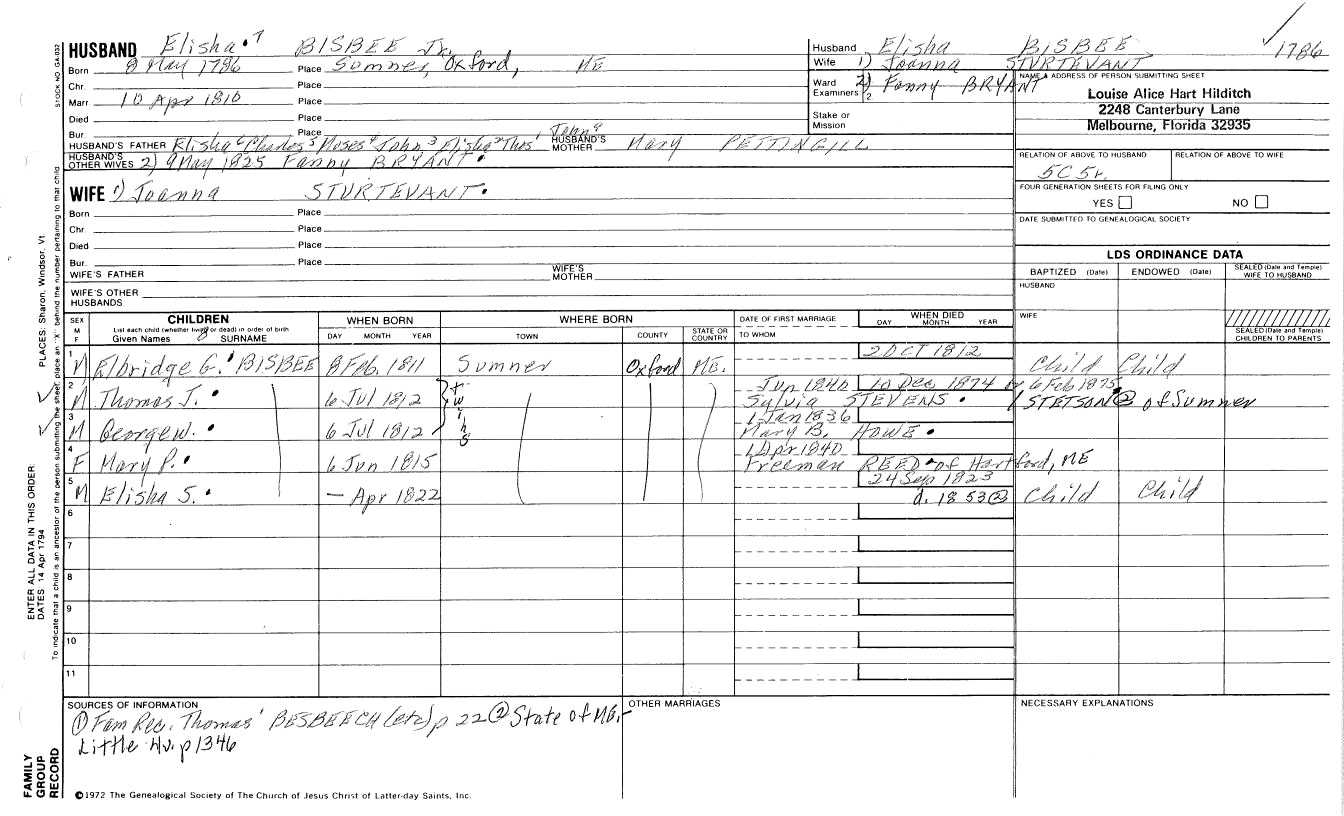 HUSBAND Elisha 7 BISBEE Jr.
Born 8 May 1786 Place Sumner, Oxford, ME
Chr. Place
Marr 10 Apr 1810 Place
Died Place
Bur Place
HUSBAND'S FATHER Elisha 6 Charles 5 Moses 4 John 3 Elisha 2 Thos 1 John 9 HUSBAND'S MOTHER Mary PETTINGILL
HUSBAND'S OTHER WIVES 2) 9 May 1825 Fanny BRYANT
WIFE 1) Joanna STURTEVANT
Born Place
Chr. Place
Died Place
Bur. Place
WIFE'S FATHER WIFE'S MOTHER
WIFE'S OTHER HUSBANDS
Husband Elisha BISBEE 1786
Wife 1) Joanna STURTEVANT
Ward 2) Fanny BRYANT
Examiners 1 2
Stake or Mission
NAME & ADDRESS OF PERSON SUBMITTING SHEET
Louise Alice Hart Hilditch
2248 Canterbury Lane
Melbourne, Florida 32935
RELATION OF ABOVE TO HUSBAND RELATION OF ABOVE TO WIFE
5C5r.
FOUR GENERATION SHEETS FOR FILING ONLY
YES NO
DATE SUBMITTED TO GENEALOGICAL SOCIETY
LDS ORDINANCE DATA
BAPTIZED (Date) ENDOWED (Date) SEALED (Date and Temple) WIFE TO HUSBAND
HUSBAND
WIFE
SEALED (Date and Temple) CHILDREN TO PARENTS
SEX M F CHILDREN WHEN BORN WHERE BORN DATE OF FIRST MARRIAGE WHEN DIED
List each child (whether living or dead) in order of birth
Given Names 8 SURNAME DAY MONTH YEAR TOWN COUNTY STATE OR COUNTRY TO WHOM DAY MONTH YEAR
1 M Elbridge G. BISBEE 8 Feb. 1811 Sumner Oxford ME. 2 OCT 1812 Child Child
2 M Thomas J. 6 Jul 1812 twins Jun 1840 10 Dec 1874 6 Feb 1875
Sylvia STEVENS / STETSON ② of Sumner
3 M George W. 6 Jul 1812 1 Jan 1836
Mary B. HOWE
4 F Mary P. 6 Jun 1815 1 Apr 1840
Freeman REED of Hartford, ME
5 M Elisha S. — Apr 1822 24 Sep 1823
d. 1853 ② Child Child
6
7
8
9
10
11
SOURCES OF INFORMATION OTHER MARRIAGES NECESSARY EXPLANATIONS
① Fam Rec. Thomas' BESBEECH (etc) p 22 ② State of ME.
Little Hv. p 1346
©1972 The Genealogical Society of The Church of Jesus Christ of Latter-day Saints, Inc.
STOCK NO. GA-032
PLACES: Sharon, Windsor, Vt
ENTER ALL DATA IN THIS ORDER:
DATES: 14 Apr 1794
To indicate that a child is an ancestor of the person submitting the sheet, place an "X" behind the number pertaining to that child
FAMILY GROUP RECORD